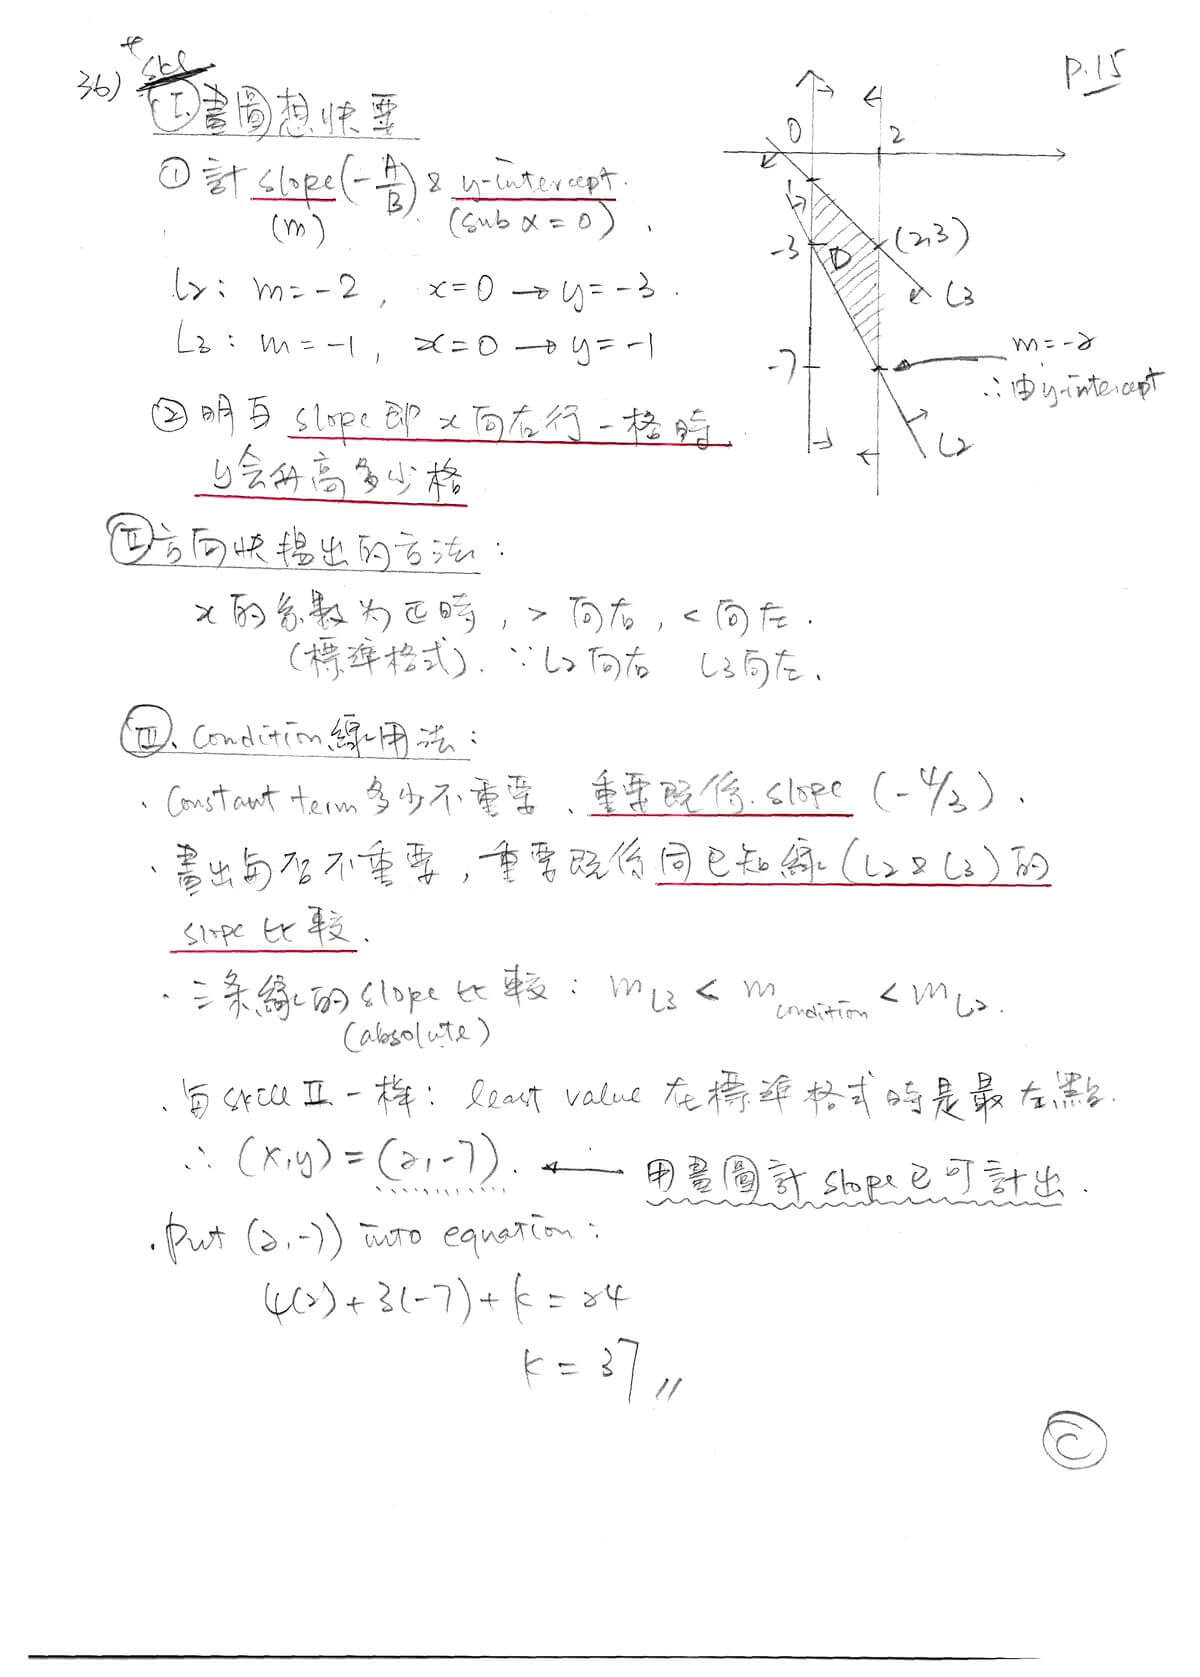 P.15
36)
I. 畫圖想快要
① 計 slope (-A/B) & y-intercept.
(m) (sub x = 0)
L2: m = -2, x=0 → y = -3.
L3: m = -1, x=0 → y = -1
② 明白 slope 即 x 向右行一格時,
y会升高多少格
0 2
-1
-3 D (2,3)
L3
-7 m = -2
∴由 y-intercept
L2
II. 方向快揾出的方法:
x的系數为正時, > 向右, < 向左.
(標準格式). ∵ L2向右 L3向左.
III. Condition 線用法:
· Constant term 多少不重要、重要既係 slope (-4/3).
· 畫出與否不重要, 重要既係同已知線 (L2 & L3) 的
slope 比較.
· 三条線的 slope 比較: mL3 < mcondition < mL2.
(absolute)
· 與 skill II 一様: least value 在標準格式時是最左點.
∴ (x,y) = (2,-7). ← 用畫圖計 slope 已可計出.
· Put (2,-7) into equation:
4(2) + 3(-7) + k = 24
k = 37 //
C